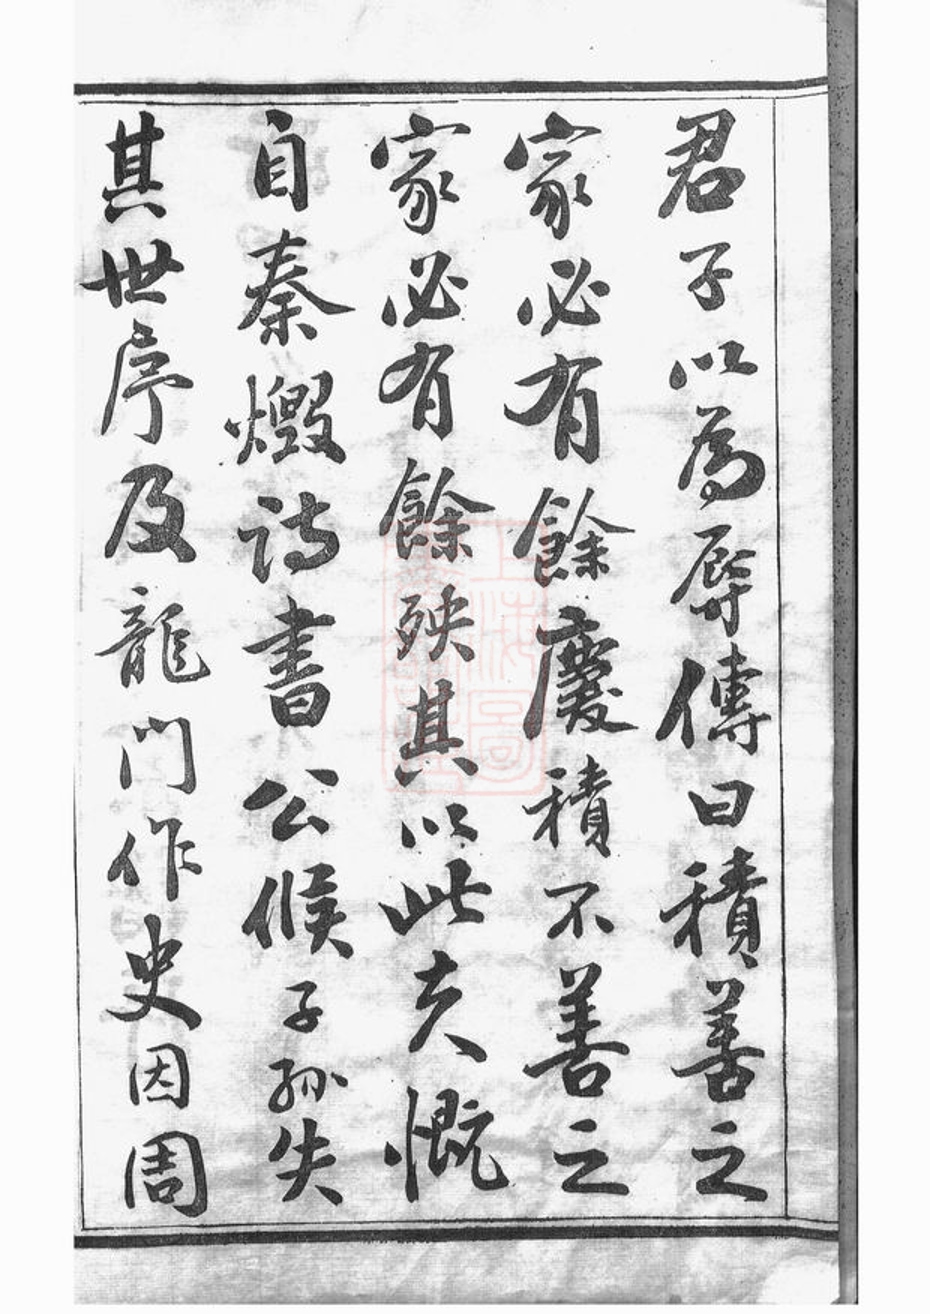 君子以為辱傳曰積善之
家必有餘慶積不善之
家必有餘殃其以此夫慨
自秦燬詩書公侯子孫失
其世序及龍門作史因周